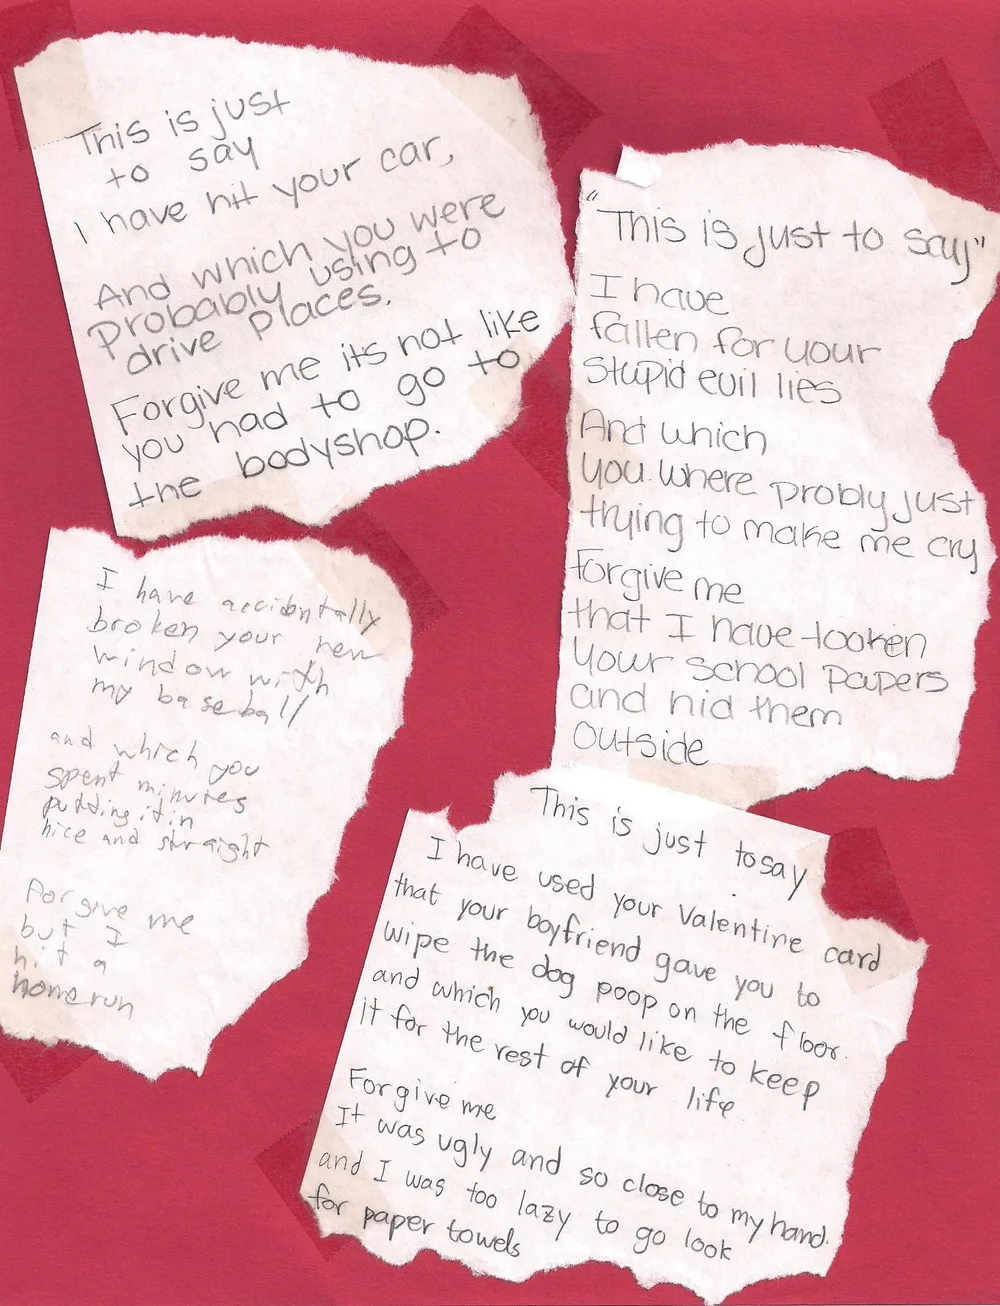 This is just
to say
I have hit your car,
And which you were
Probably using to
drive places.
Forgive me its not like
you had to go to
the bodyshop.
"This is just to say"
I have
fallen for your
stupid evil lies
And which
you where probly just
trying to make me cry
forgive me
that I have tooken
your school papers
and hid them
outside
I have accidntally
broken your new
window with
my baseball
and which you
spent minutes
putting it in
nice and straight
Forgive me
but I
hit a
homerun
This is just to say
I have used your Valentine card
that your boyfriend gave you to
wipe the dog poop on the floor.
and which you would like to keep
it for the rest of your life
Forgive me
It was ugly and so close to my hand.
and I was too lazy to go look
for paper towels